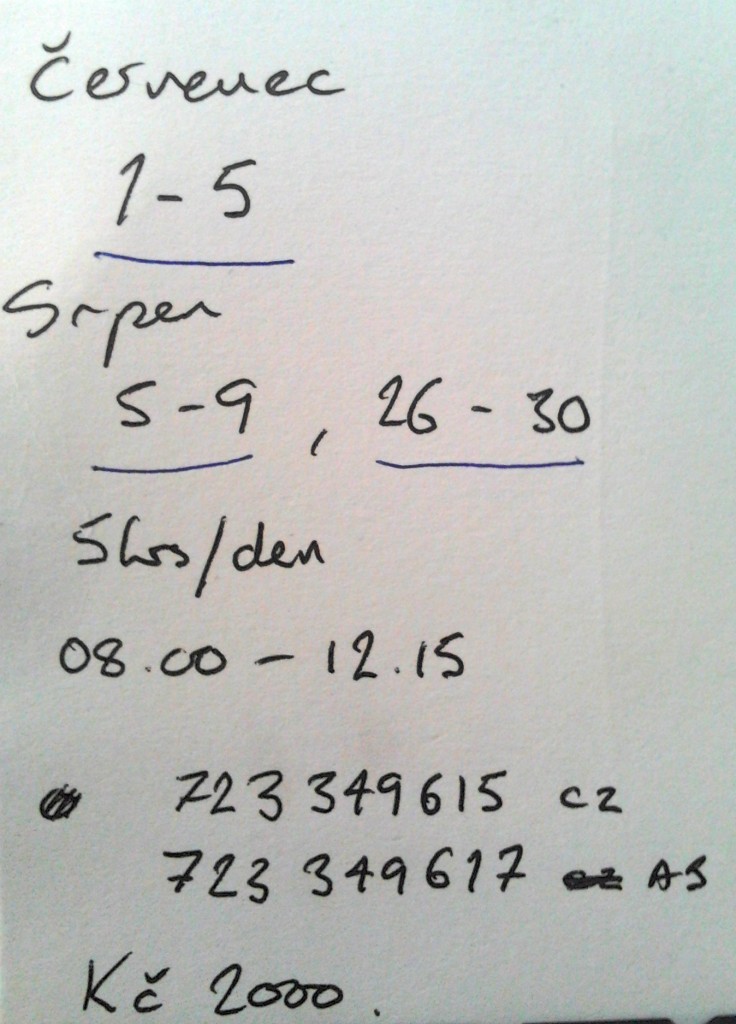 Červenec
1 - 5
Srpen
5 - 9 , 26 - 30
5hrs/den
08.00 - 12.15
723 349615 cz
723 349617 AJ
Kč 2000.